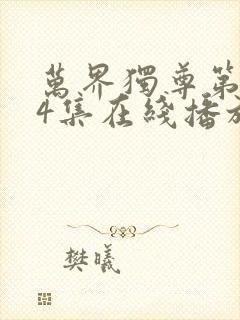 萬界獨尊第
4集在綫播放
樊曦